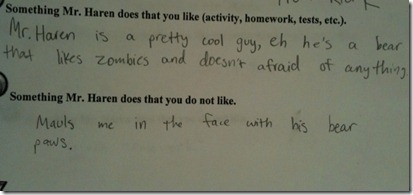 Something Mr. Haren does that you like (activity, homework, tests, etc.).
Mr. Haren is a pretty cool guy, eh he's a bear
that likes zombies and doesn't afraid of anything
Something Mr. Haren does that you do not like.
Mauls me in the face with his bear
paws.